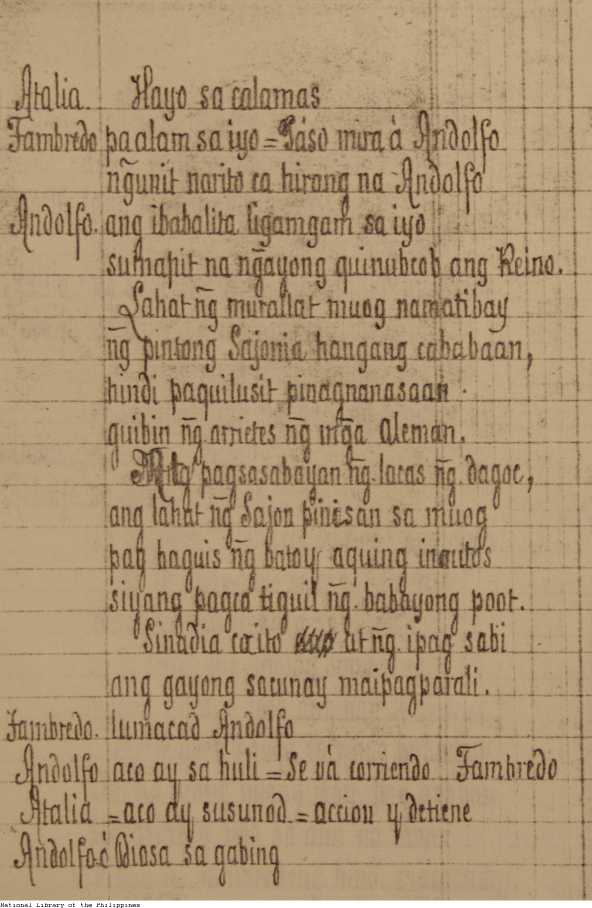 Atalia. Hayo sa calamas
Fambredo paalam sa iyo = Páso mira à Andolfo
ng̃unit narito ca hirang na Andolfo
Andolfo. ang ibabalita ligamgam sa iyo
sumapit na ng̃ayong quinubcob ang Reino.
Lahat ng̃ murallat muog namatibay
ng̃ pintong Sajonia hangang cababaan,
hindi paquilusit pinagnanasaan
guibin ng̃ arrietes ng̃ mg̃a Aleman.
pagsasabayan ng̃ lacas ng̃ dagoc,
ang lahat ng̃ Sajon pinésan sa muog
pag haguis ng̃ batoy aquing iniutos
siyang pagca tiguil ng̃ babayong poot.
Sinadia co ito at ng̃ ipag sabi
ang gayong sacunay maipagparali.
Fambredo. lumacad Andolfo
Andolfo aco ay sa huli = Se vá corriendo Fambredo
Atalia = aco ay susunod = accion y detiene
Andolfo ó Diosa sa gabing
National Library of the Philippines